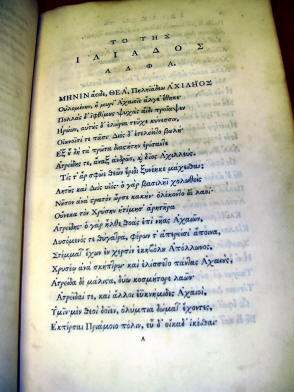 ΤΟ ΤΗΣ
ΙΛΙΑΔΟΣ
ΑΛΦΑ.
ΜΗΝΙΝ ἄειδε, ΘΕΑ, Πηληϊάδεω ΑΧΙΛΗΟΣ
Οὐλομένην, ἣ μυρί' Ἀχαιοῖς ἄλγε' ἔθηκε·
Πολλὰς δ' ἰφθίμους ψυχὰς ἄϊδι προΐαψεν
Ἡρώων, αὐτοὺς δ' ἑλώρια τεῦχε κύνεσσιν,
Οἰωνοῖσί τε πᾶσι· Διὸς δ' ἐτελείετο βουλή·
Ἐξ οὗ δὴ τὰ πρῶτα διαστήτην ἐρίσαντε
Ἀτρείδης τε, ἄναξ ἀνδρῶν, καὶ δῖος Ἀχιλλεύς.
Τίς τ' ἄρ σφῶε θεῶν ἔριδι ξυνέηκε μάχεσθαι;
Λητοῦς καὶ Διὸς υἱός· ὁ γὰρ βασιλῆϊ χολωθεὶς
Νοῦσον ἀνὰ στρατὸν ὦρσε κακὴν· ὀλέκοντο δὲ λαοί·
Οὕνεκα τὸν Χρύσην ἠτίμησ' ἀρητῆρα
Ἀτρείδης· ὁ γὰρ ἦλθε θοὰς ἐπὶ νῆας Ἀχαιῶν,
Λυσόμενός τε θύγατρα, φέρων τ' ἀπερείσι' ἄποινα,
Στέμμα τ' ἔχων ἐν χερσὶν ἑκηβόλου Ἀπόλλωνος,
Χρυσέῳ ἀνὰ σκήπτρῳ· καὶ ἐλίσσετο πάντας Ἀχαιοὺς,
Ἀτρείδα δὲ μάλιστα, δύω κοσμήτορε λαῶν·
Ἀτρεῖδαί τε, καὶ ἄλλοι ἐϋκνήμιδες Ἀχαιοὶ,
Ὑμῖν μὲν θεοὶ δοῖεν, ὀλύμπια δώματ' ἔχοντες,
Ἐκπέρσαι Πριάμοιο πόλιν, εὖ δ' οἴκαδ' ἱκέσθαι·
Α